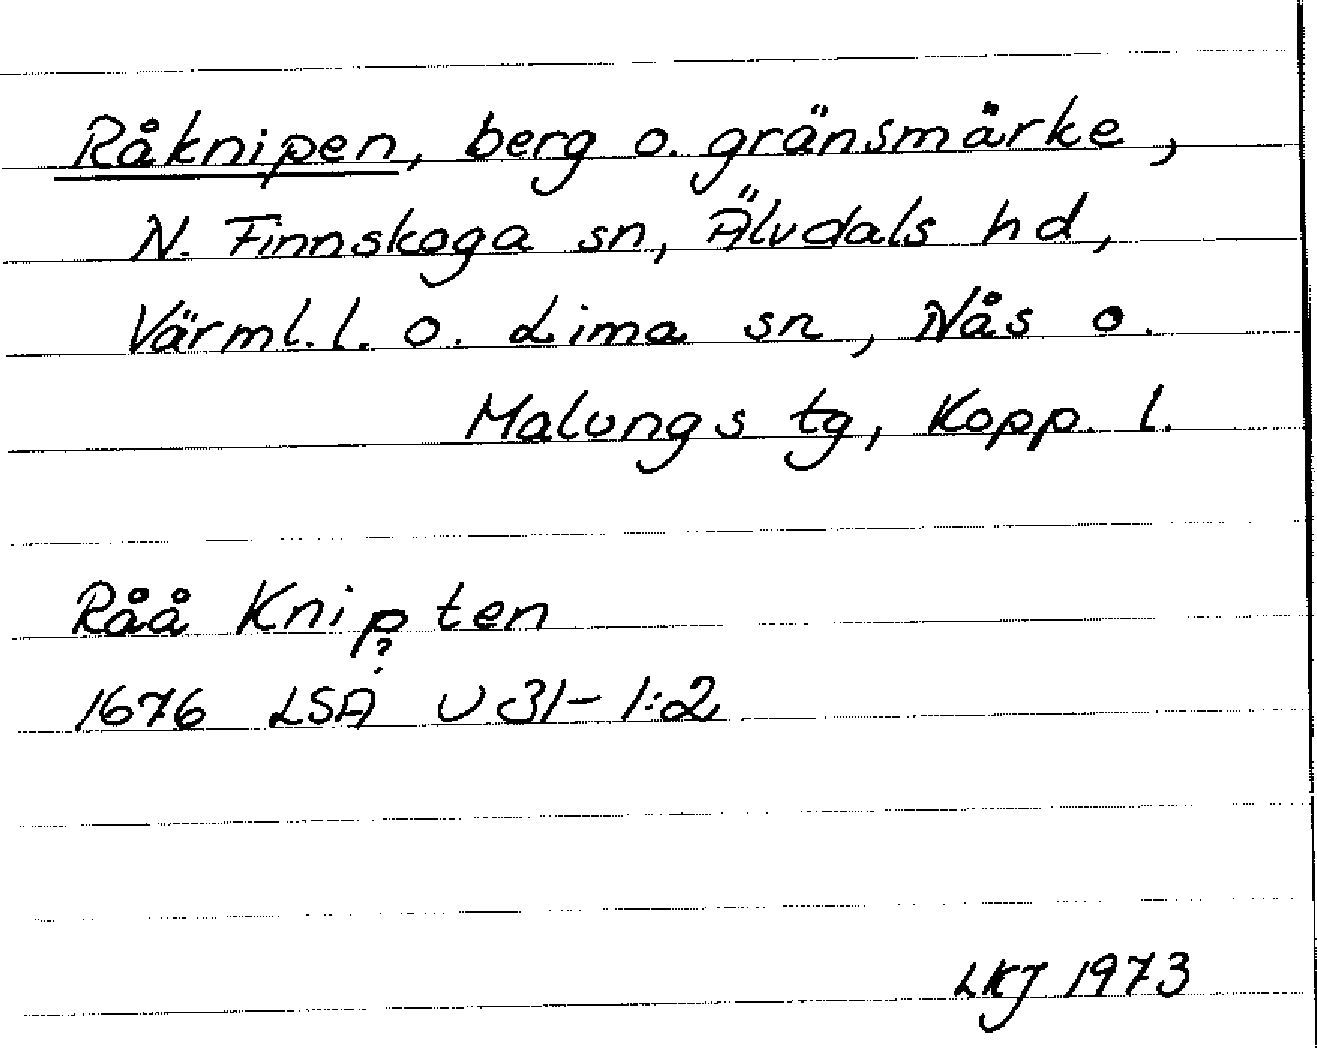 Råknipen, berg o. gränsmärke,
N. Finnskoga sn, Älvdals hd,
Värml. l. o. Lima sn, Nås o.
Malungs tg, Kopp. l.
Råå Knipten
?
1676 LSA U 31-1:2
LKJ 1973